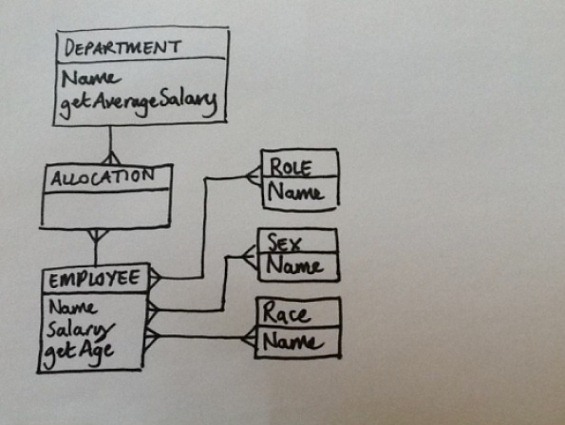 DEPARTMENT
Name
getAverageSalary
ALLOCATION
EMPLOYEE
Name
Salary
getAge
ROLE
Name
SEX
Name
Race
Name